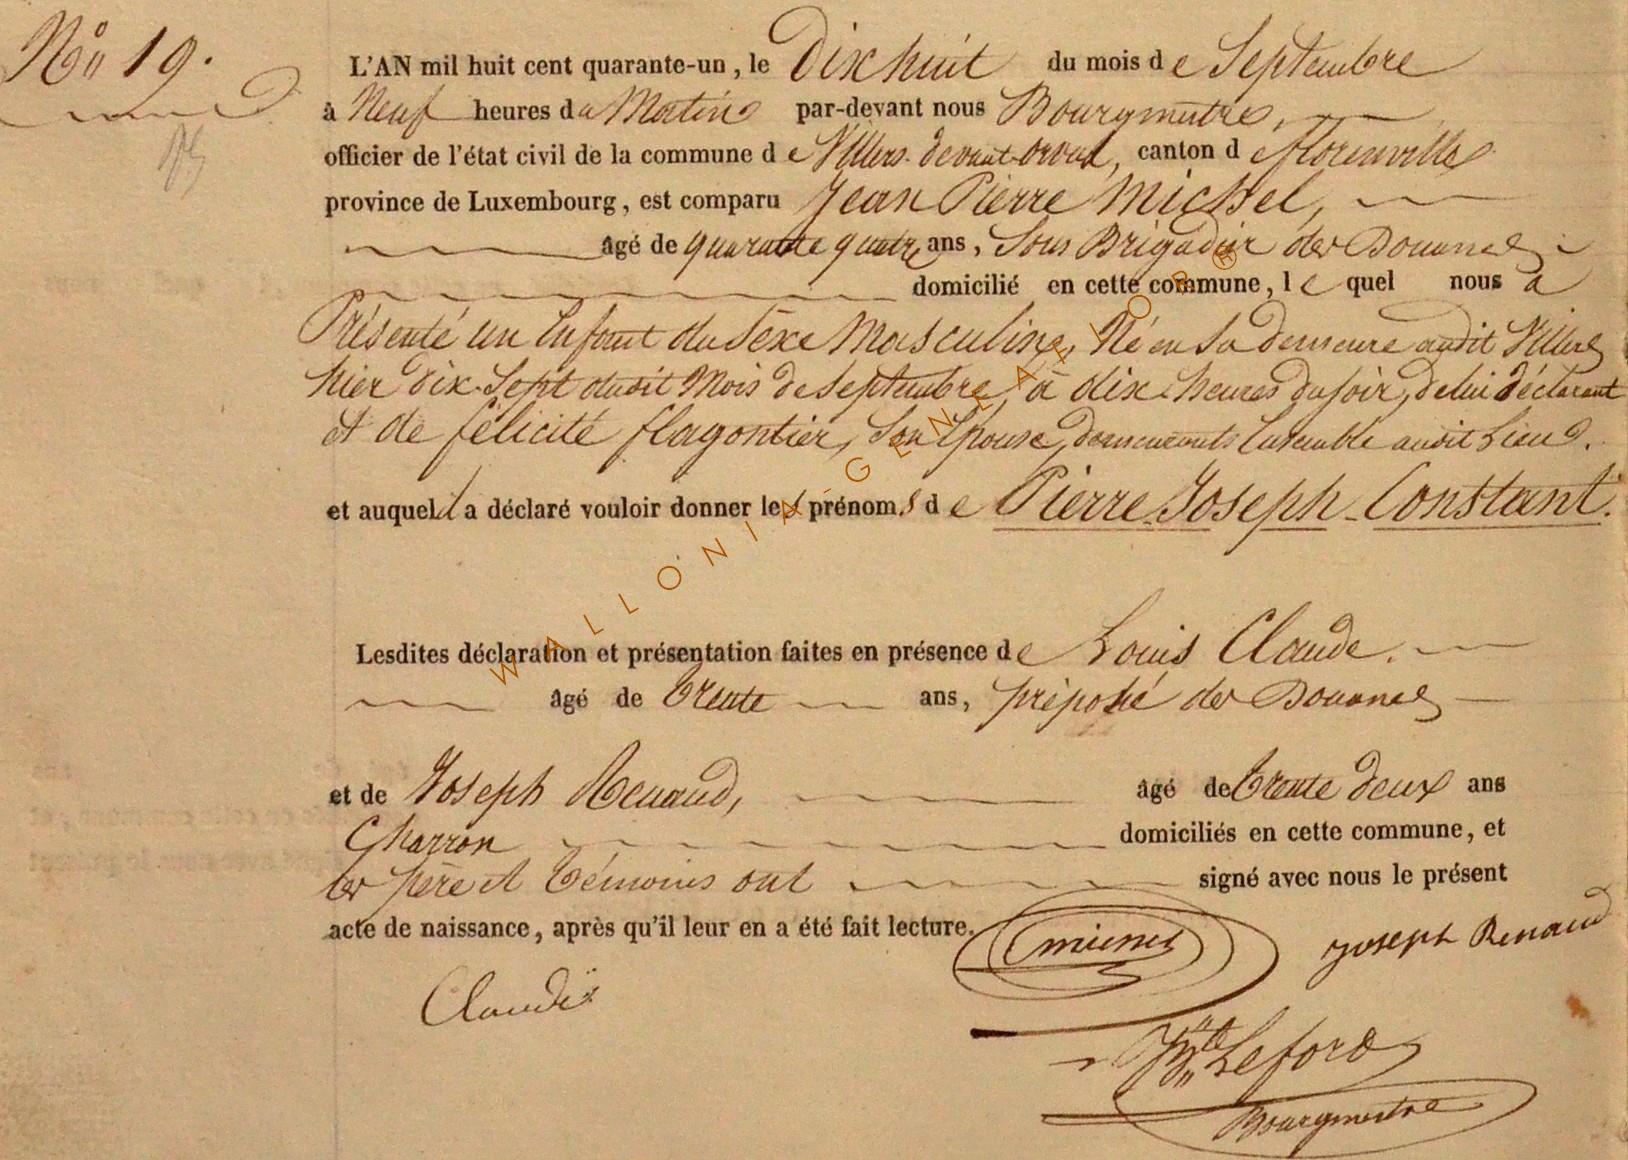 N° 19.
L'AN mil huit cent quarante-un, le Dix huit du mois de Septembre
à Neuf heures du Matin par-devant nous Bourgmestre,
officier de l'état civil de la commune de Villers-devant-orval, canton de florenville
province de Luxembourg, est comparu Jean Pierre Michel,
âgé de quarante quatre ans, Sous Brigadier des Douanes
domicilié en cette commune, le quel nous a
Présenté un Enfant du Sexe Masculin, Né en Sa demeure audit Villers
hier dix-Sept dudit Mois de Septembre, à dix heures du soir, de lui déclarant
et de félicité flagontier, Son Epouse, demeurants Ensemble audit Lieu.
et auquel il a déclaré vouloir donner les prénoms de Pierre-Joseph-Constant.
Lesdites déclaration et présentation faites en présence de Louis Claude.
âgé de trente ans, préposé des Douanes
et de Joseph Renaud, âgé de trente deux ans
Charron domiciliés en cette commune, et
les père et témoins ont signé avec nous le présent
acte de naissance, après qu'il leur en a été fait lecture.
Joseph Renaud
Claude
Leford
Bourgmestre
WALLONIA-GENEALOR ®